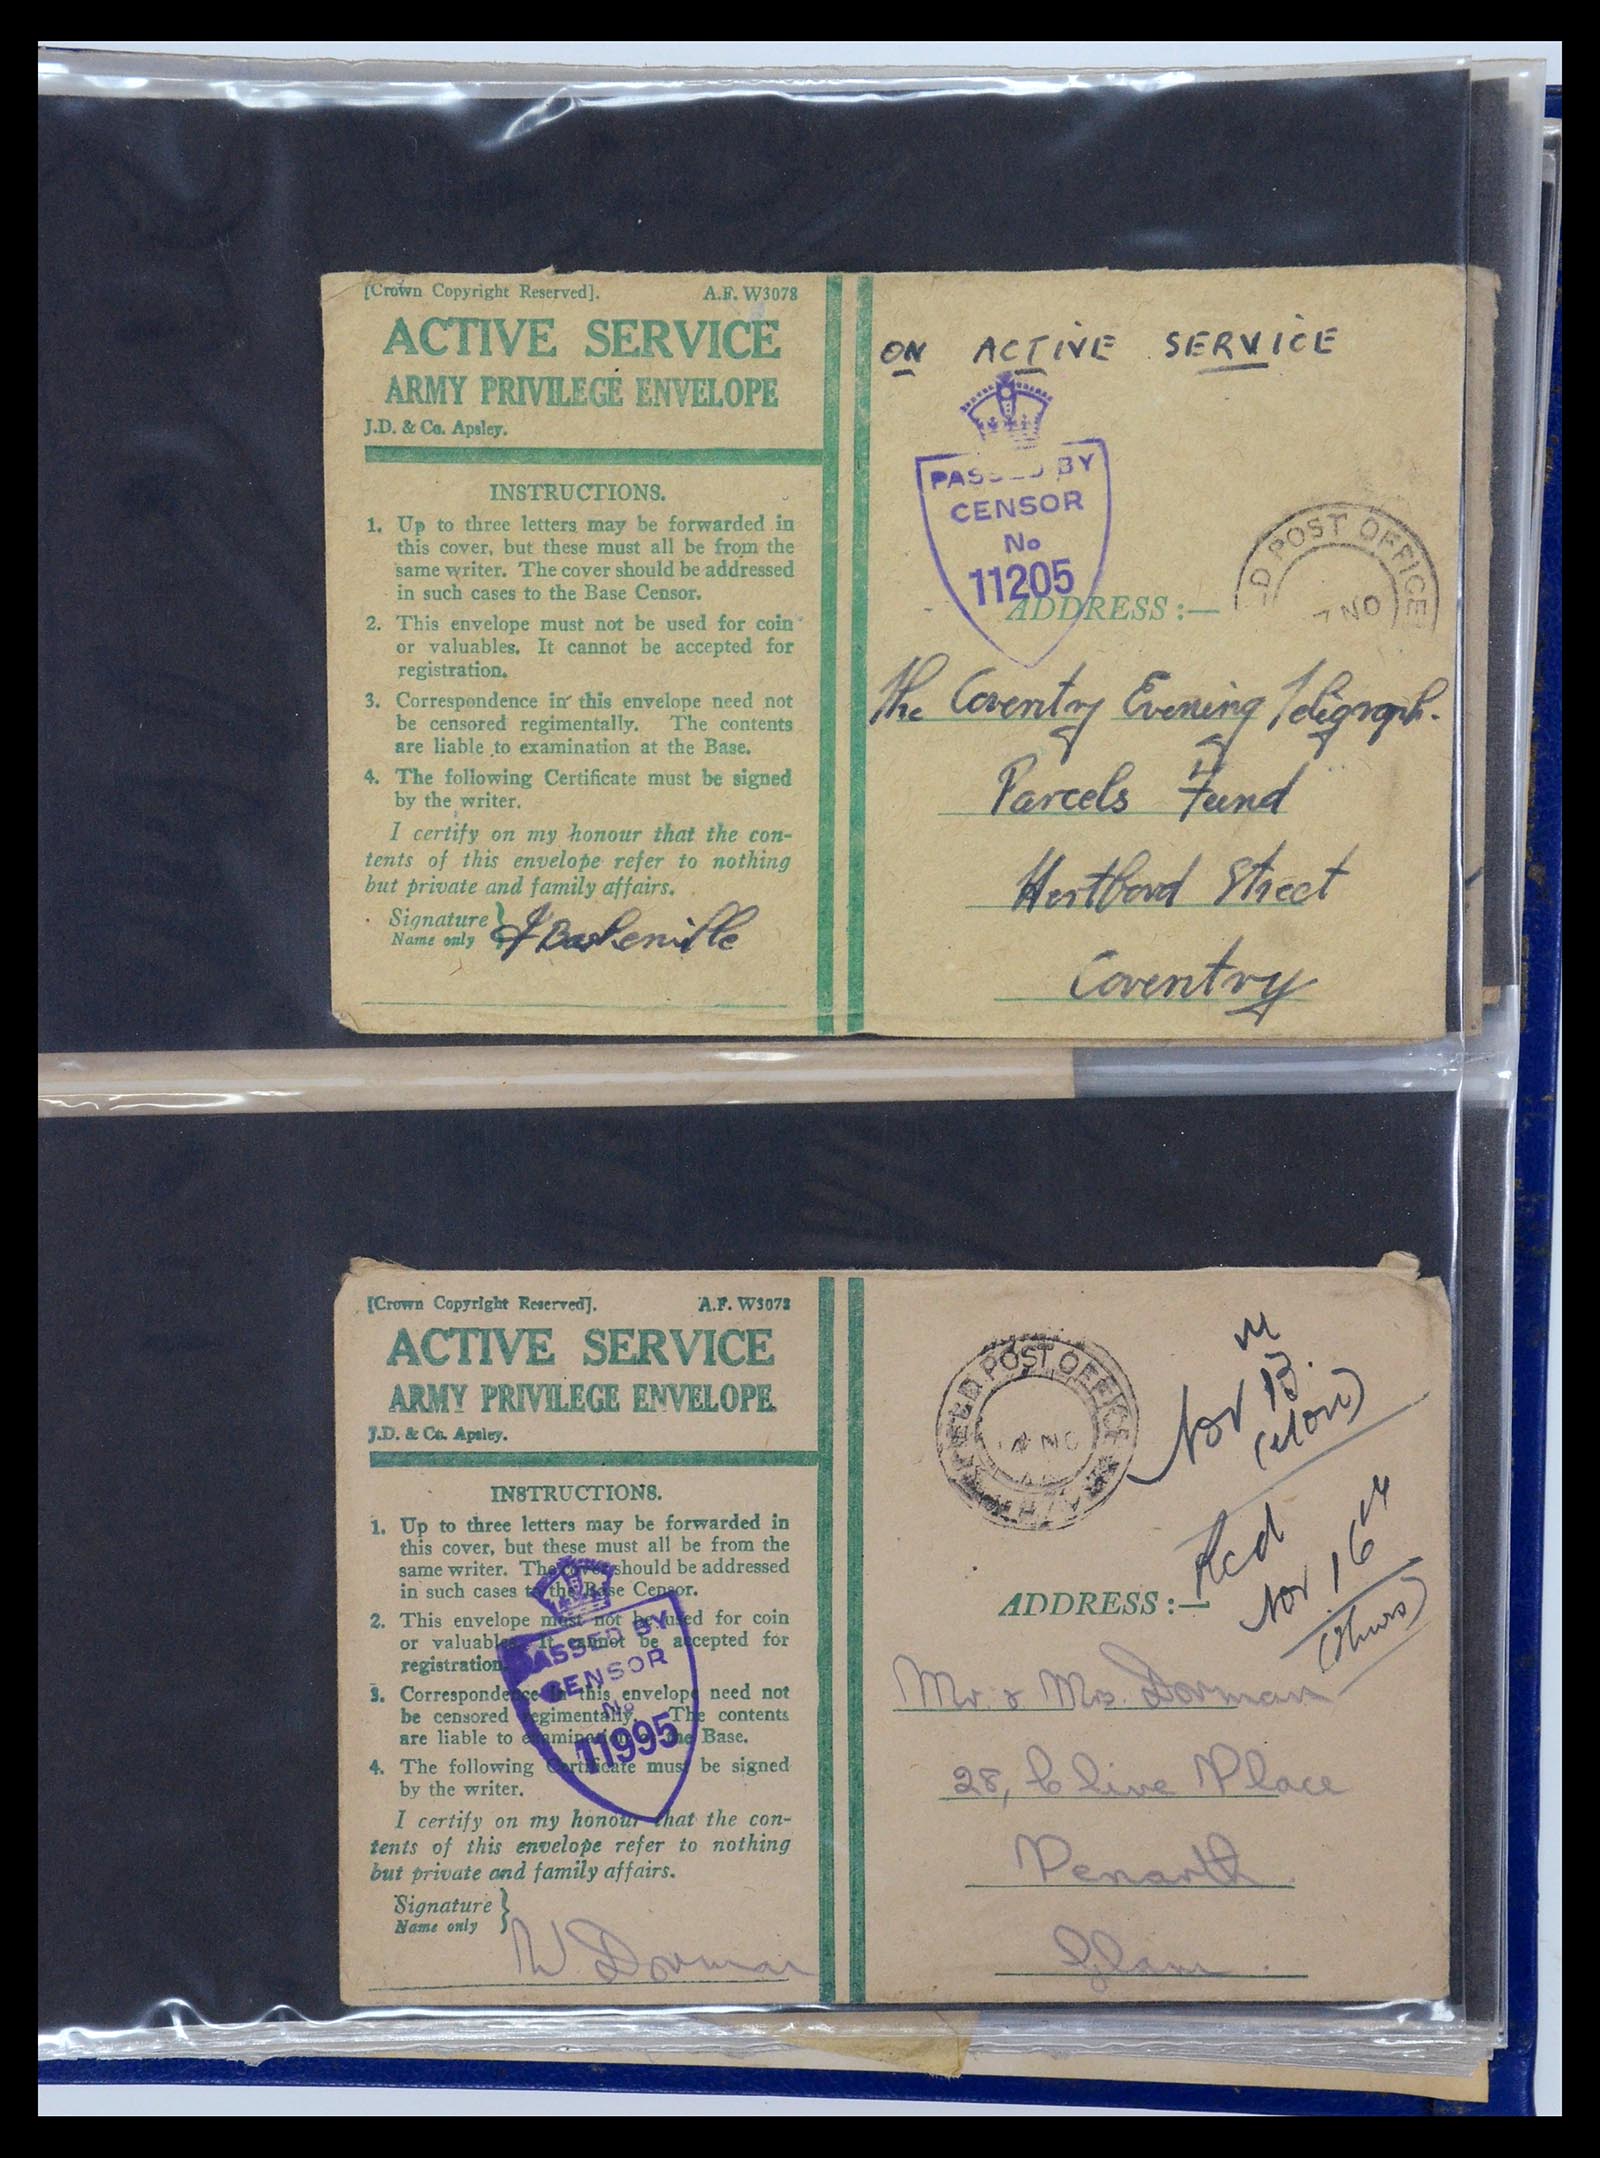 [Crown Copyright Reserved]. A.F. W3078
ACTIVE SERVICE
ARMY PRIVILEGE ENVELOPE
J.D. & Co. Apsley.
INSTRUCTIONS.
1. Up to three letters may be forwarded in
this cover, but these must all be from the
same writer. The cover should be addressed
in such cases to the Base Censor.
2. This envelope must not be used for coin
or valuables. It cannot be accepted for
registration.
3. Correspondence in this envelope need not
be censored regimentally. The contents
are liable to examination at the Base.
4. The following Certificate must be signed
by the writer.
I certify on my honour that the con-
tents of this envelope refer to nothing
but private and family affairs.
Signature
Name only
Baskerville
ON ACTIVE SERVICE
PASSED BY
CENSOR
No
11205
D POST OFFICE
7 NO
ADDRESS :—
The Coventry Evening Telegraph.
Parcels Fund
Street
Coventry
[Crown Copyright Reserved]. A.F. W3078
ACTIVE SERVICE
ARMY PRIVILEGE ENVELOPE
J.D. & Co. Apsley.
INSTRUCTIONS.
1. Up to three letters may be forwarded in
this cover, but these must all be from the
same writer. The cover should be addressed
in such cases to the Base Censor.
2. This envelope must not be used for coin
or valuables. It cannot be accepted for
registration.
3. Correspondence in this envelope need not
be censored regimentally. The contents
are liable to examination at the Base.
4. The following Certificate must be signed
by the writer.
I certify on my honour that the con-
tents of this envelope refer to nothing
but private and family affairs.
Signature
Name only
W Dorman
PASSED BY
CENSOR
No
11995
FIELD POST OFFICE
NO
Nov 13
(Mon)
Rcd
Nov 16
(Thurs)
ADDRESS :—
Mr. & Mrs. Dorman
28, Clive Place
Penarth
Glam.